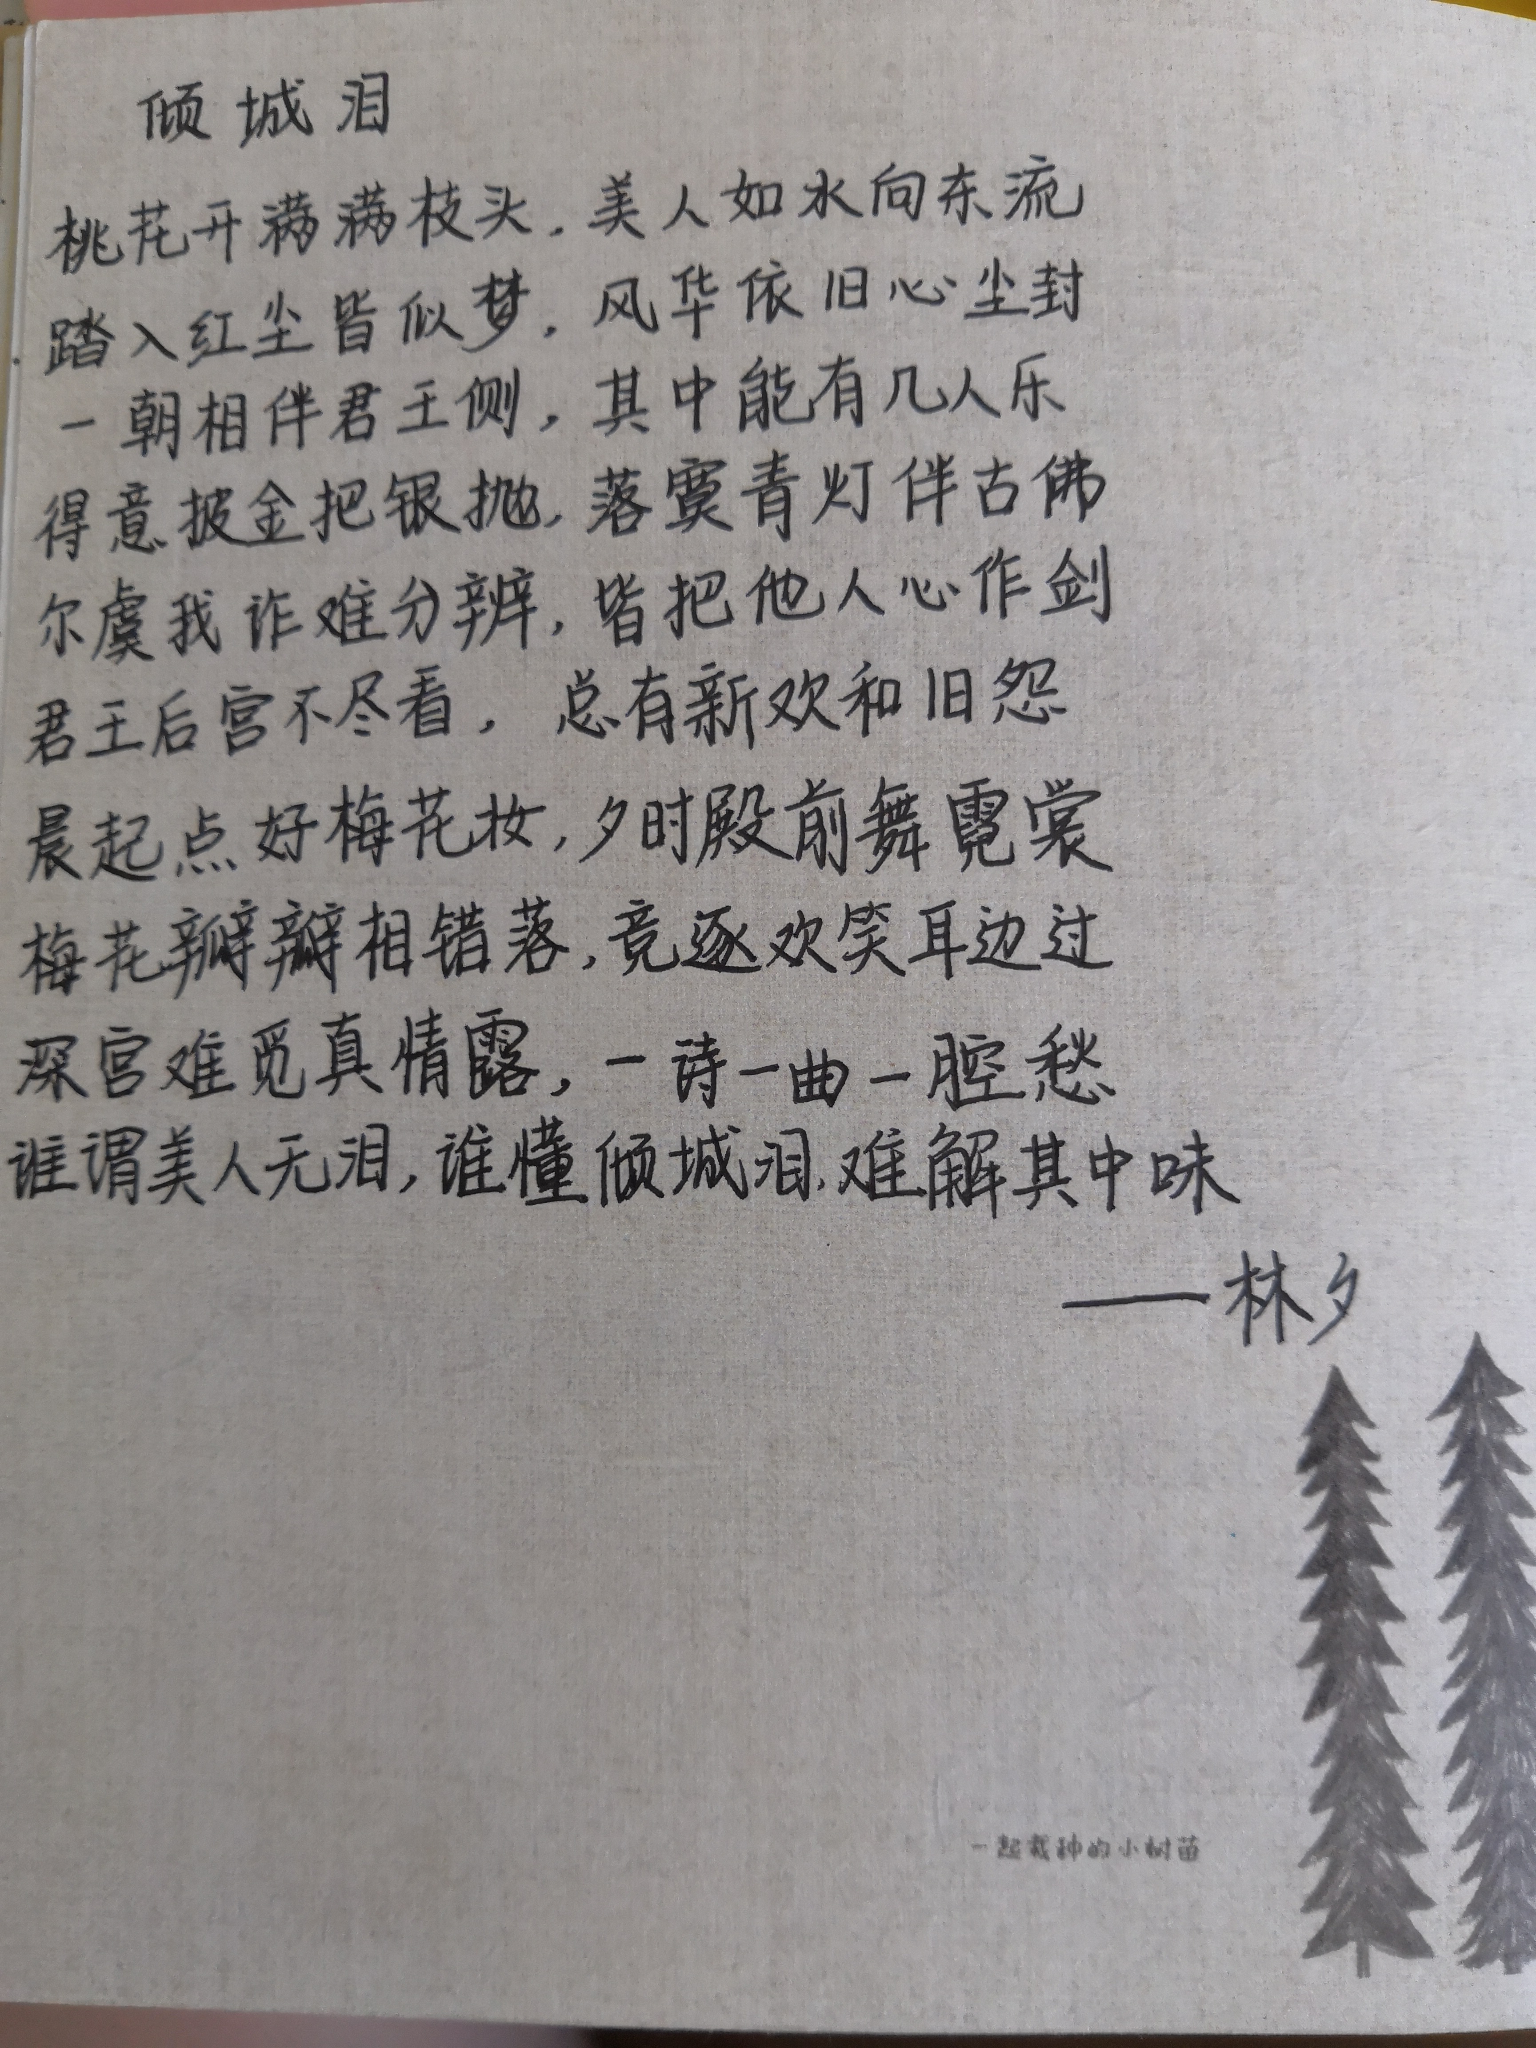 倾城泪
桃花开满满枝头，美人如水向东流
踏入红尘皆似梦，风华依旧心尘封
一朝相伴君王侧，其中能有几人乐
得意披金把银抛，落寞青灯伴古佛
尔虞我诈难分辨，皆把他人心作剑
君王后宫不尽看，总有新欢和旧怨
晨起点好梅花妆，夕时殿前舞霓裳
梅花瓣瓣相错落，竞逐欢笑耳边过
深宫难觅真情露，一诗一曲一腔愁
谁谓美人无泪，谁懂倾城泪，难解其中味
——林夕
一起栽种的小树苗